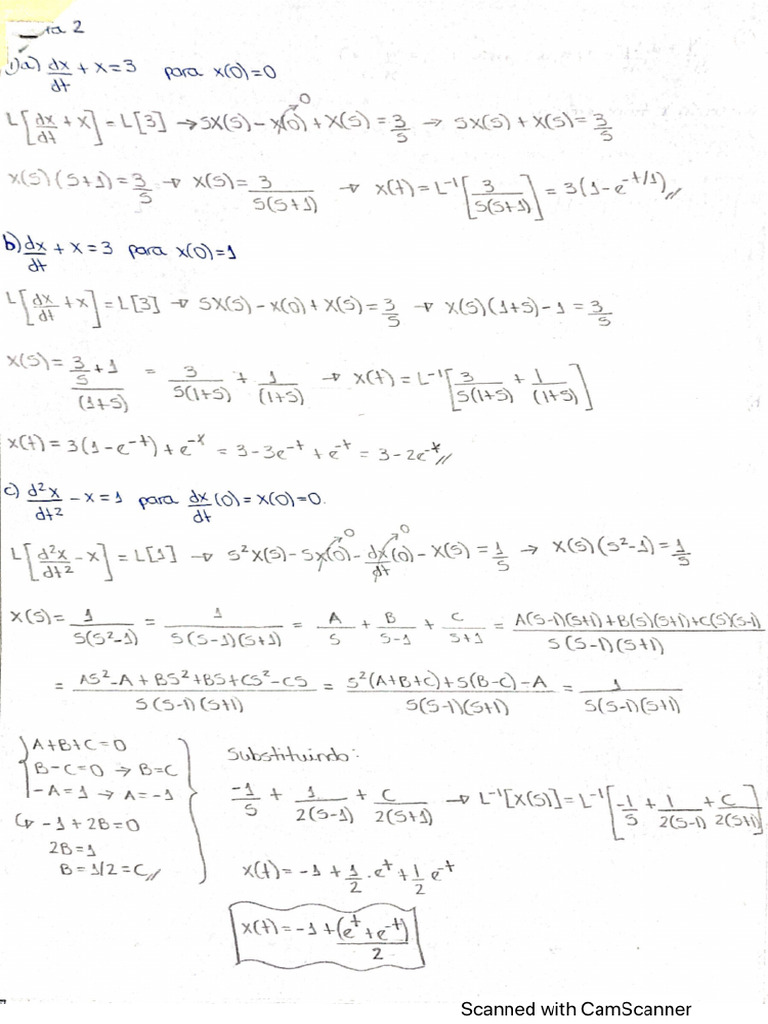 ta 2
1) a) dx/dt + x = 3 para x(0)=0
L[dx/dt + x] = L[3] → SX(S) - x(0) + X(S) = 3/S → SX(S) + X(S) = 3/S
0
X(S)(S+1) = 3/S → X(S) = 3/S(S+1) → x(t) = L⁻¹[3/S(S+1)] = 3(1-e^(-t/1))//
b) dx/dt + x = 3 para x(0)=1
L[dx/dt + x] = L[3] → SX(S) - x(0) + X(S) = 3/S → X(S)(1+S) - 1 = 3/S
X(S) = (3/S + 1)/(1+S) = 3/S(1+S) + 1/(1+S) → x(t) = L⁻¹[3/S(1+S) + 1/(1+S)]
x(t) = 3(1-e^-t) + e^-t = 3 - 3e^-t + e^-t = 3 - 2e^-t//
c) d²x/dt² - x = 1 para dx/dt (0) = x(0) = 0.
L[d²x/dt² - x] = L[1] → S²X(S) - Sx(0) - dx/dt (0) - X(S) = 1/S → X(S)(S²-1) = 1/S
0 0
X(S) = 1/S(S²-1) = 1/S(S-1)(S+1) = A/S + B/S-1 + C/S+1 = A(S-1)(S+1)+B(S)(S+1)+C(S)(S-1)/S(S-1)(S+1)
= AS²-A+BS²+BS+CS²-CS/S(S-1)(S+1) = S²(A+B+C)+S(B-C)-A/S(S-1)(S+1) = 1/S(S-1)(S+1)
A+B+C=0
B-C=0 → B=C
-A=1 → A=-1
↳ -1+2B=0
2B=1
B=1/2=C//
Substituindo:
-1/S + 1/2(S-1) + C/2(S+1) → L⁻¹[X(S)] = L⁻¹[-1/S + 1/2(S-1) + C/2(S+1)]
x(t) = -1 + 1/2 . e^t + 1/2 e^-t
x(t) = -1 + (e^t + e^-t)/2
Scanned with CamScanner